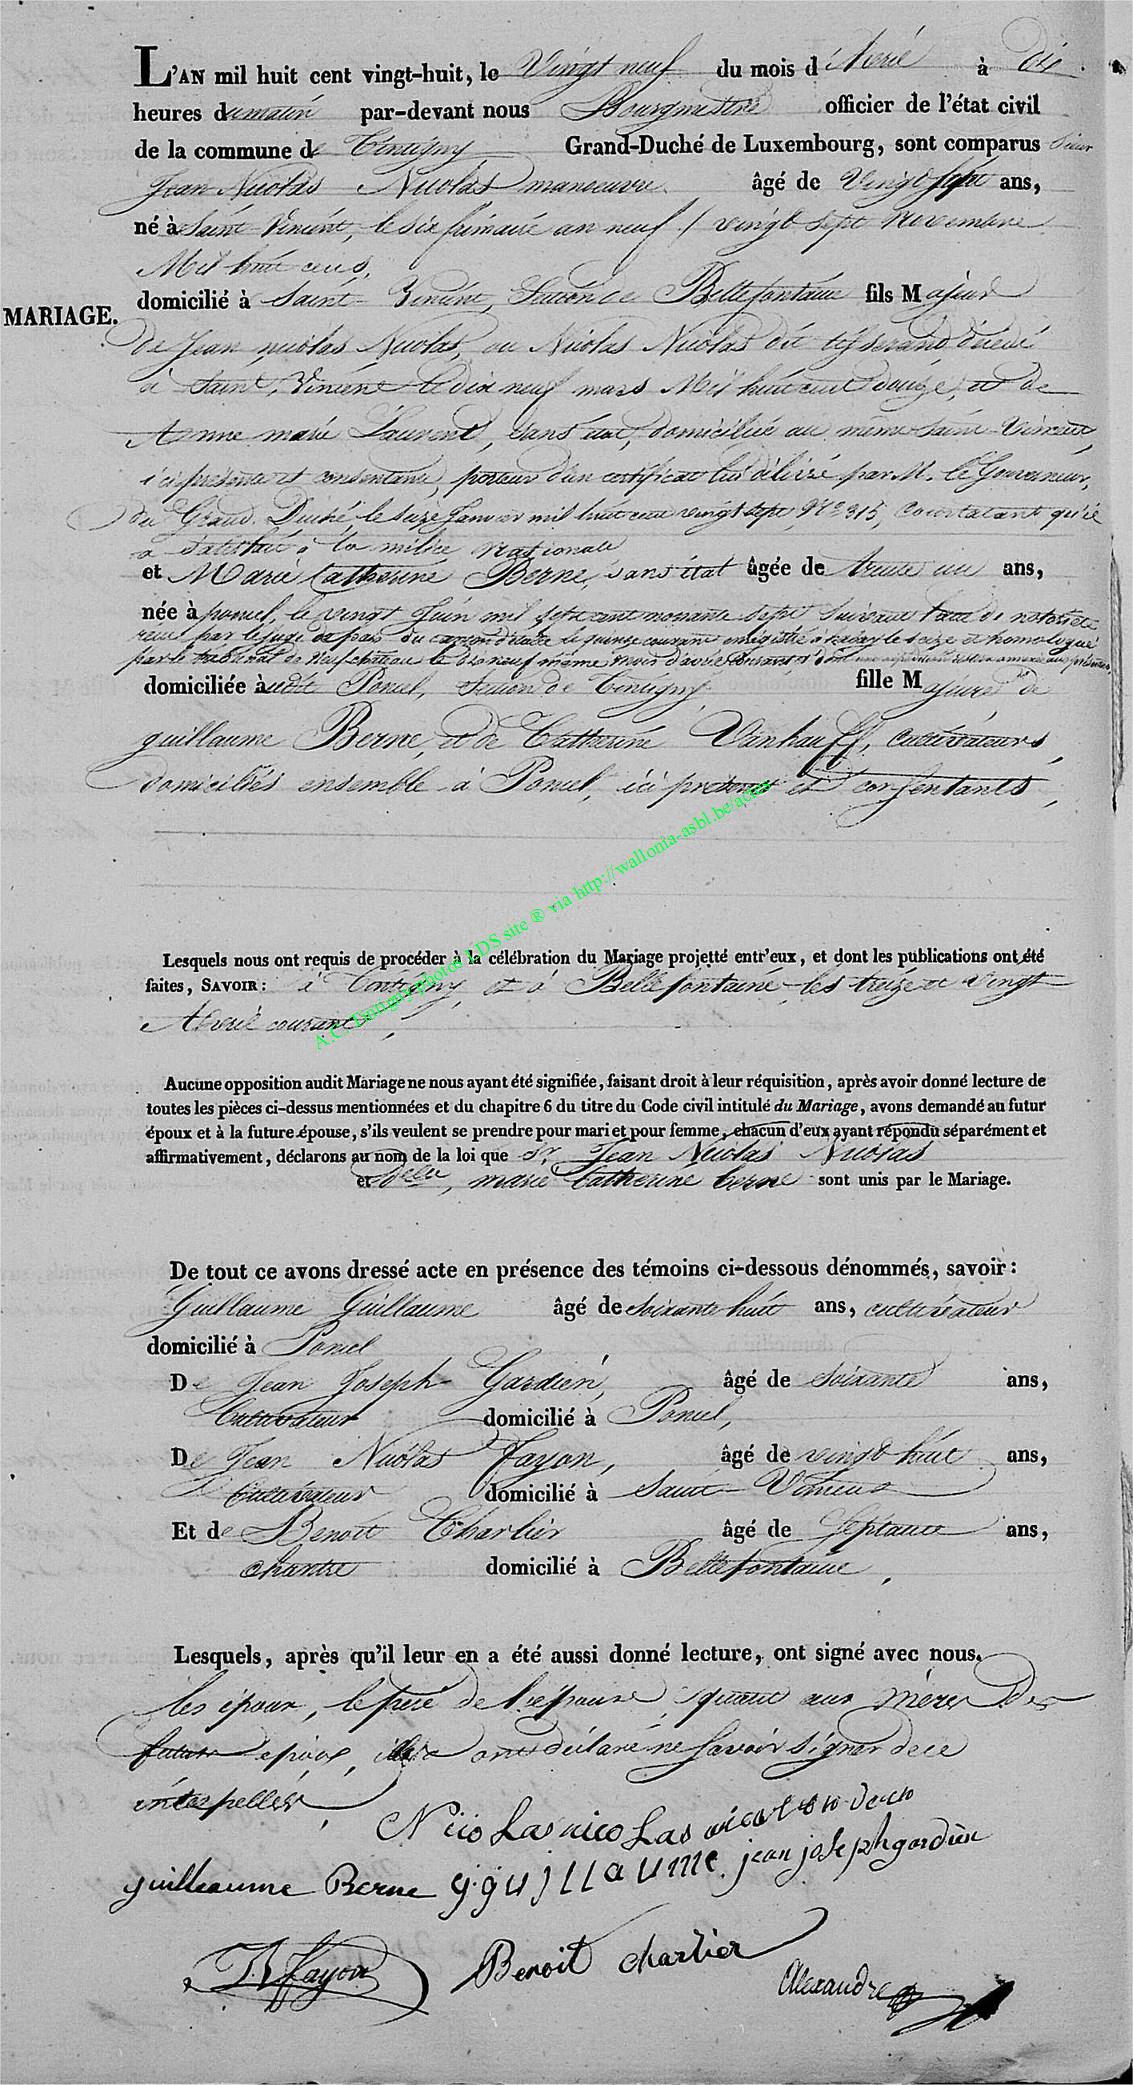 L'AN mil huit cent vingt-huit, le Vingt neuf du mois d'Avril à dix
heures du matin par-devant nous Bourgmestre officier de l'état civil
de la commune de Tintigny Grand-Duché de Luxembourg, sont comparus Sieur
Jean Nicolas Nicolas manoeuvre âgé de Vingt sept ans,
né à Saint Vincent, le six frimaire an neuf / vingt sept novembre
Mil huit cens,
MARIAGE.
domicilié à Saint Vincent, Section de Bellefontaine fils Majeur
de Jean nicolas Nicolas, ou Nicolas Nicolas dit tisserand décédé
à Saint Vincent le dix neuf mars Mil huit cent douze, et de
Anne marie Laurent, sans état, domiciliée au même Saint-Vincent,
ici présente et consentante, porteur d'un certificat lui délivré par M. le Gouverneur,
du Grand Duché, le seize Janvier mil huit cent vingt sept, N° 315, Constatant qu'il
a satisfait à la milice Nationale
et Marie Catherine Berne, sans état âgée de trente un ans,
née à poncel, le vingt Juin mil sept cent nonante sept Suivant l'acte de notoriété
reçu par le juge de paix du canton d'Etalle le quinze courant enregistré à le seize et homologué
par le tribunal de Neufchateau le dix neuf même mois d'avril courant,
domiciliée audit Poncel, section de Tintigny, fille Majeure de
guillaume Berne, et de Catherine Vanhauff, cultivateurs,
domiciliés ensemble à Poncel, ici présents et consentants,
Lesquels nous ont requis de procéder à la célébration du Mariage projetté entr'eux, et dont les publications ont été
faites, SAVOIR : à Tintigny, et à Bellefontaine les treize et vingt
Avril courant,
Aucune opposition audit Mariage ne nous ayant été signifiée, faisant droit à leur réquisition, après avoir donné lecture de
toutes les pièces ci-dessus mentionnées et du chapitre 6 du titre du Code civil intitulé du Mariage, avons demandé au futur
époux et à la future épouse, s'ils veulent se prendre pour mari et pour femme, chacun d'eux ayant répondu séparément et
affirmativement, déclarons au nom de la loi que Sr. Jean Nicolas Nicolas
et Delle, marie Catherine berne sont unis par le Mariage.
De tout ce avons dressé acte en présence des témoins ci-dessous dénommés, savoir :
Guillaume Guillaume âgé de soixante huit ans, cultivateur
domicilié à Poncel
De Jean Joseph Gardien, âgé de soixante ans,
Cultivateur domicilié à Poncel,
De Jean Nicolas Fayon, âgé de vingt huit ans,
Cultivateur domicilié à Saint-Vincent
Et de Benoit Charlier âgé de Septante ans,
chantre domicilié à Bellefontaine,
Lesquels, après qu'il leur en a été aussi donné lecture, ont signé avec nous.
les époux, le père de l'epouse, quant aux mères des
futurs epoux, elles ont déclaré ne savoir signer de ce
interpellés,
Nicolas nicolas
guilleaume Berne g. guillaume jean joseph gardien
Fayon Benoit charlier
Alexandre
A.C. Tintigny photos LDS site ® via http://wallonia-asbl.be/actes